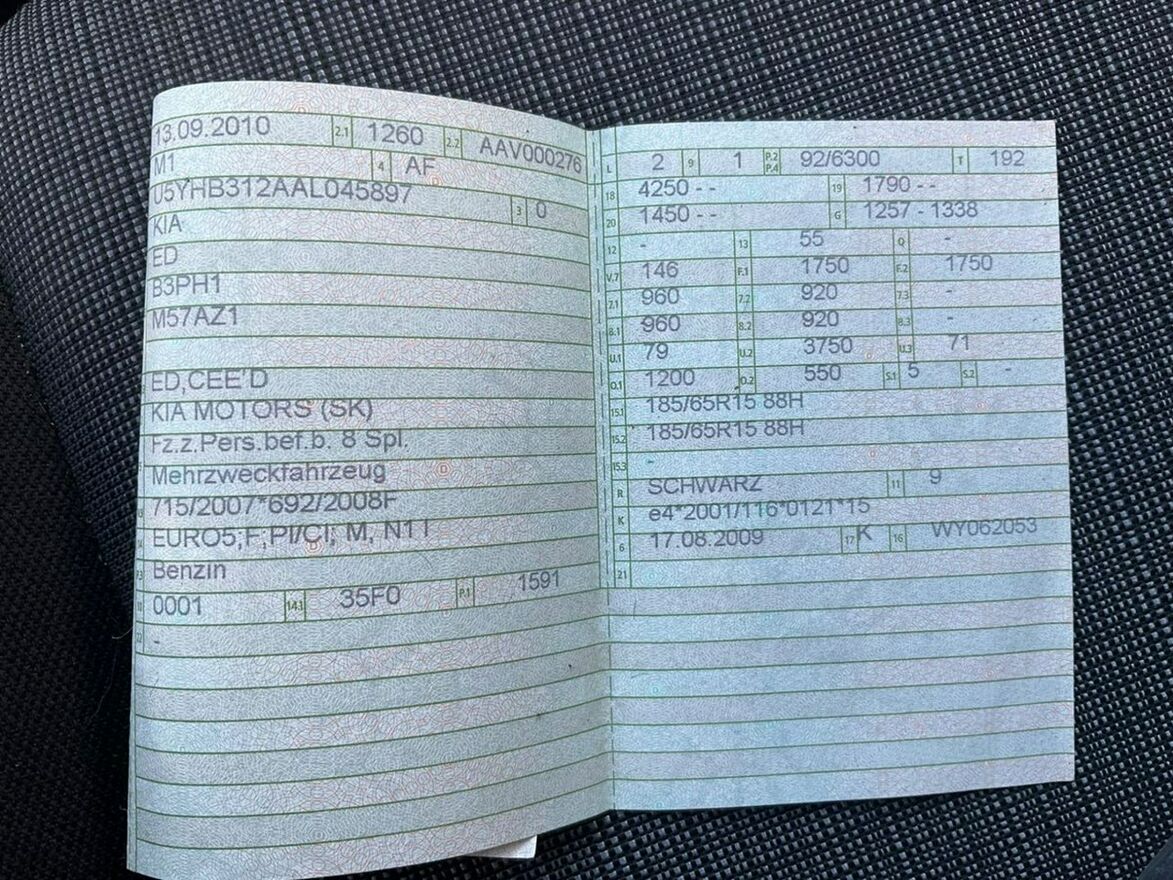 13.09.2010 2.1 1260 2.2 AAV000276
M1 4 AF
U5YHB312AAL045897 3 0
KIA
ED
B3PH1
M57AZ1
ED,CEE'D
KIA MOTORS (SK)
Fz.z.Pers.bef.b. 8 Spl.
Mehrzweckfahrzeug
715/2007*692/2008F
EURO5;F;PI/CI; M, N1 I
Benzin
10 0001 14.1 35F0 P.1 1591
22 -
L 2 9 1 P.2 P.4 92/6300 T 192
18 4250 - - 19 1790 - -
20 1450 - - G 1257 - 1338
12 - 13 55 Q -
V.7 146 F.1 1750 F.2 1750
7.1 960 7.2 920 7.3 -
8.1 960 8.2 920 8.3 -
U.1 79 U.2 3750 U.3 71
O.1 1200 O.2 550 S.1 5 S.2 -
15.1 185/65R15 88H
15.2 185/65R15 88H
15.3 -
R SCHWARZ 11 9
K e4*2001/116*0121*15
6 17.08.2009 17 K 16 WY062053
21